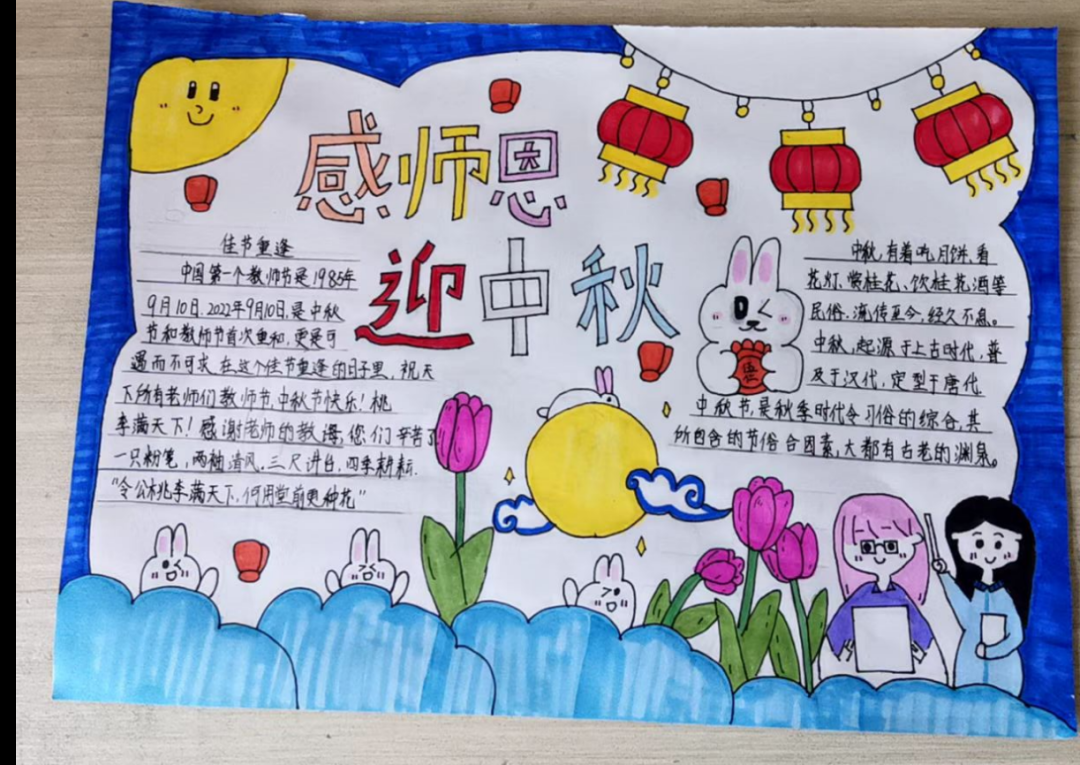 感师恩
迎中秋
佳节重逢
中国第一个教师节是1985年
9月10日、2022年9月10日,是中秋
节和教师节首次重和,更是可
遇而不可求,在这个佳节重逢的日子里,祝天
下所有老师们教师节,中秋节快乐!桃
李满天下!感谢老师的教海,您们辛苦了
一只粉笔,两袖清风,三尺讲台,四季耕耘.
“令公桃李满天下,何用堂前更种花”
中秋,有着吃月饼、看
花灯、赏桂花、饮桂花酒等
民俗、流传至今,经久不息。
中秋,起源于上古时代,普
及于汉代,定型于唐代
中秋节,是秋季时代令习俗的综合,其
所包含的节俗合因素,大都有古老的渊泉。